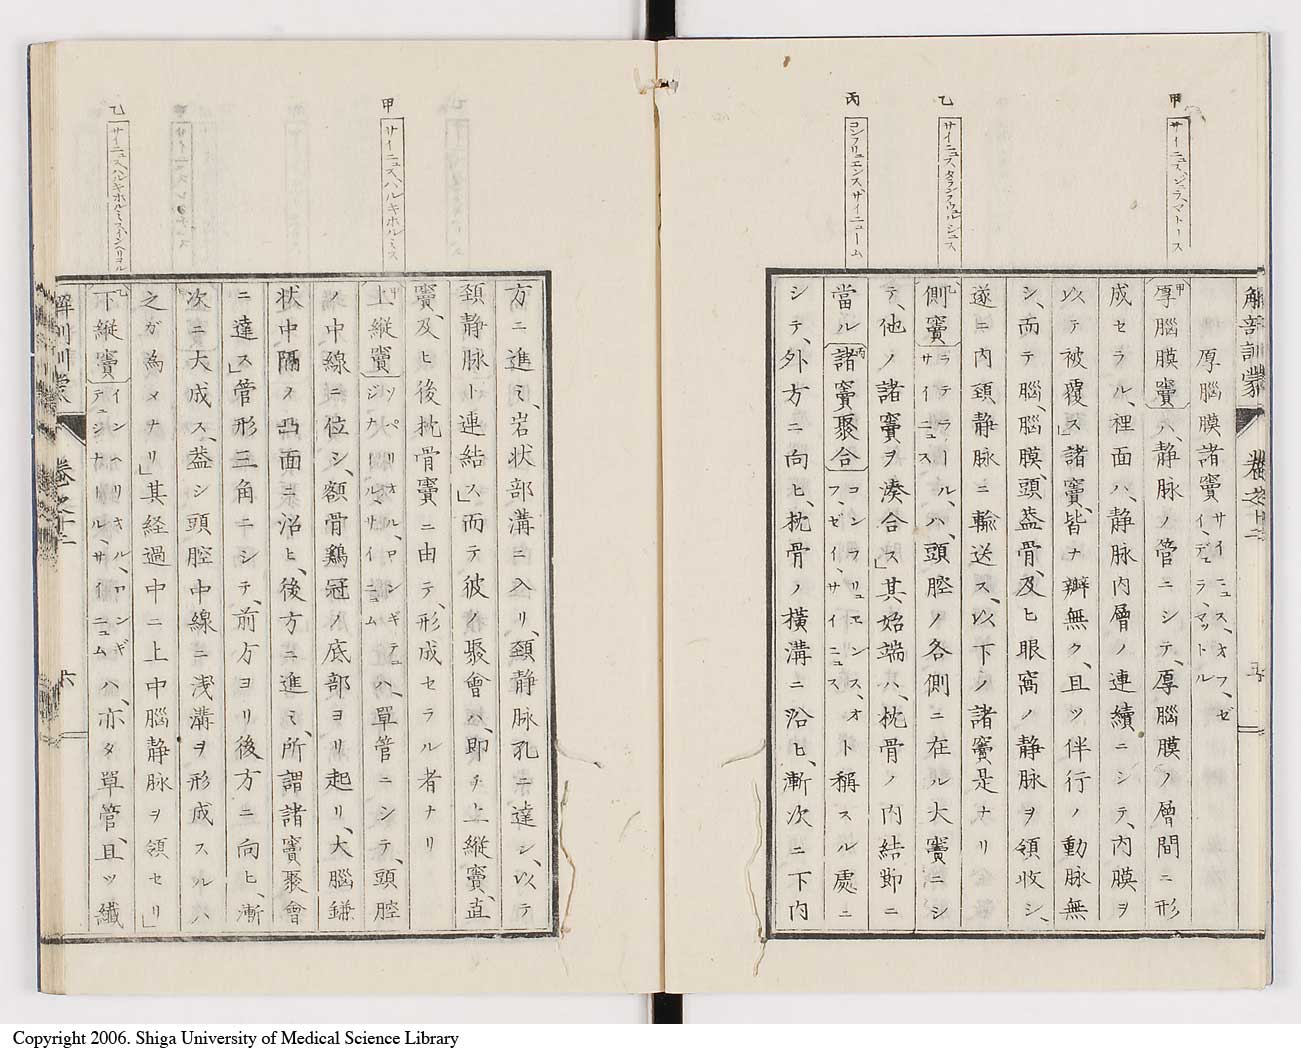 甲
サイニュス、ジュラ、マトリース
乙
サイニュス、タランスウェルシュス
丙
コンフリュエンス、サイニューム
解剖訓蒙
巻之十二
五
厚腦膜諸竇 サイニュス、オフ、ゼ
イ、デュラ、マットル
甲厚腦膜竇ハ、静脉ノ管ニシテ、厚腦膜ノ層間ニ形
成セラル、裡面ハ、静脉内層ノ連續ニシテ、内膜ヲ
以テ被覆ス」諸竇、皆ナ瓣無ク、且ツ伴行ノ動脉無
シ、而テ腦、腦膜、頭葢骨、及ヒ眼窩ノ静脉ヲ領收シ、
遂ニ内頚静脉ニ輸送ス、以下ノ諸竇是ナリ
乙側竇 ラテラール、
サイニュス ハ、頭腔ノ各側ニ在ル大竇ニシ
テ、他ノ諸竇ヲ湊合ス」其始端ハ、枕骨ノ内結節ニ
當ル丙諸竇聚合 コンフリュエンス、オ
フ、ゼイ、サイニュス ト稱スル處ニ
シテ、外方ニ向ヒ、枕骨ノ横溝ニ沿ヒ、漸次ニ下内
甲
サイニュス、ハルキホルミス
乙
サイニュス、ハルキホルミス、インヘリヲル
方ニ進ミ、岩状部溝ニ入リ、頚静脉孔ニ達シ、以テ
頚静脉ト連結ス」而テ彼ノ聚會ハ、即チ上縦竇、直
竇、及ヒ後枕骨竇ニ由テ、形成セラル者ナリ
甲上縦竇 ソペリオル、ロンギテュ
ジナール、サイニュム ハ、單管ニシテ、頭腔
ノ中線ニ位シ、額骨鶏冠ノ底部ヨリ起リ、大腦鎌
状中隔ノ凸面ニ沿ヒ、後方ニ進ミ、所謂諸竇聚會
ニ達ス」管形三角ニシテ、前方ヨリ後方ニ向ヒ、漸
次ニ大成ス、葢シ頭腔中線ニ浅溝ヲ形成スルハ
之ガ為メナリ」其経過中ニ上中腦静脉ヲ領セリ」
乙下縦竇 インヘリオル、ロンギ
テュジナール、サイニュム ハ、亦タ單管、且ツ纎
解剖訓蒙
巻之十二
六
Copyright 2006. Shiga University of Medical Science Library